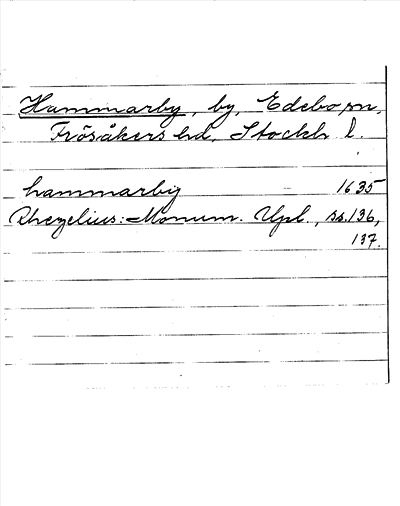 Hammarby, by, Edebo sn,
Frösåkers hd, Stockh l.
hammarby 1635
Rhezelius: Monum. Upl., ss. 136,
137.